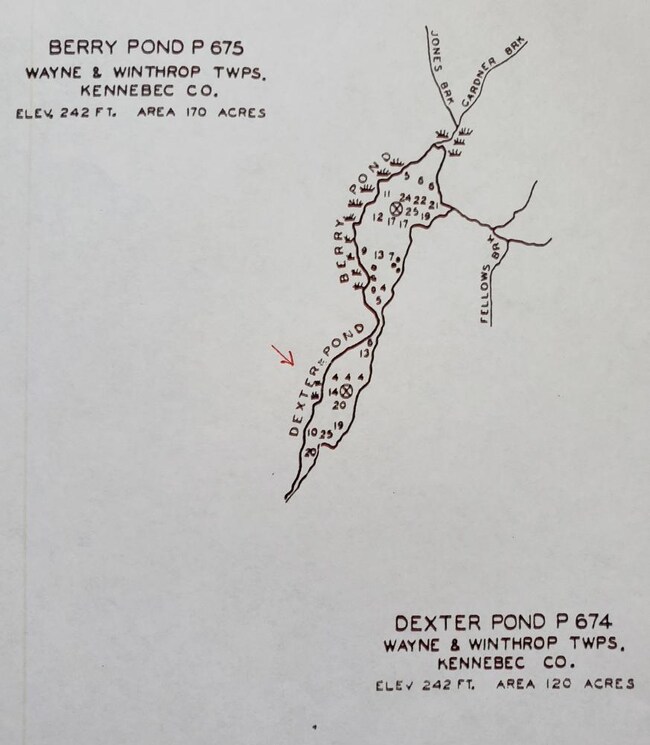 BERRY POND P 675
WAYNE & WINTHROP TWPS.
KENNEBEC CO.
ELEV. 242 FT. AREA 170 ACRES
JONES BRK
GARDNER BRK
BERRY POND
5 6 6
11 24 22 21
25 19
12 17 17
9 13 7
6
4
5
FELLOWS BRK
DEXTER POND
6
13
4 4 4
14
20
19
10 25
20
DEXTER POND P 674
WAYNE & WINTHROP TWPS.
KENNEBEC CO.
ELEV 242 FT. AREA 120 ACRES